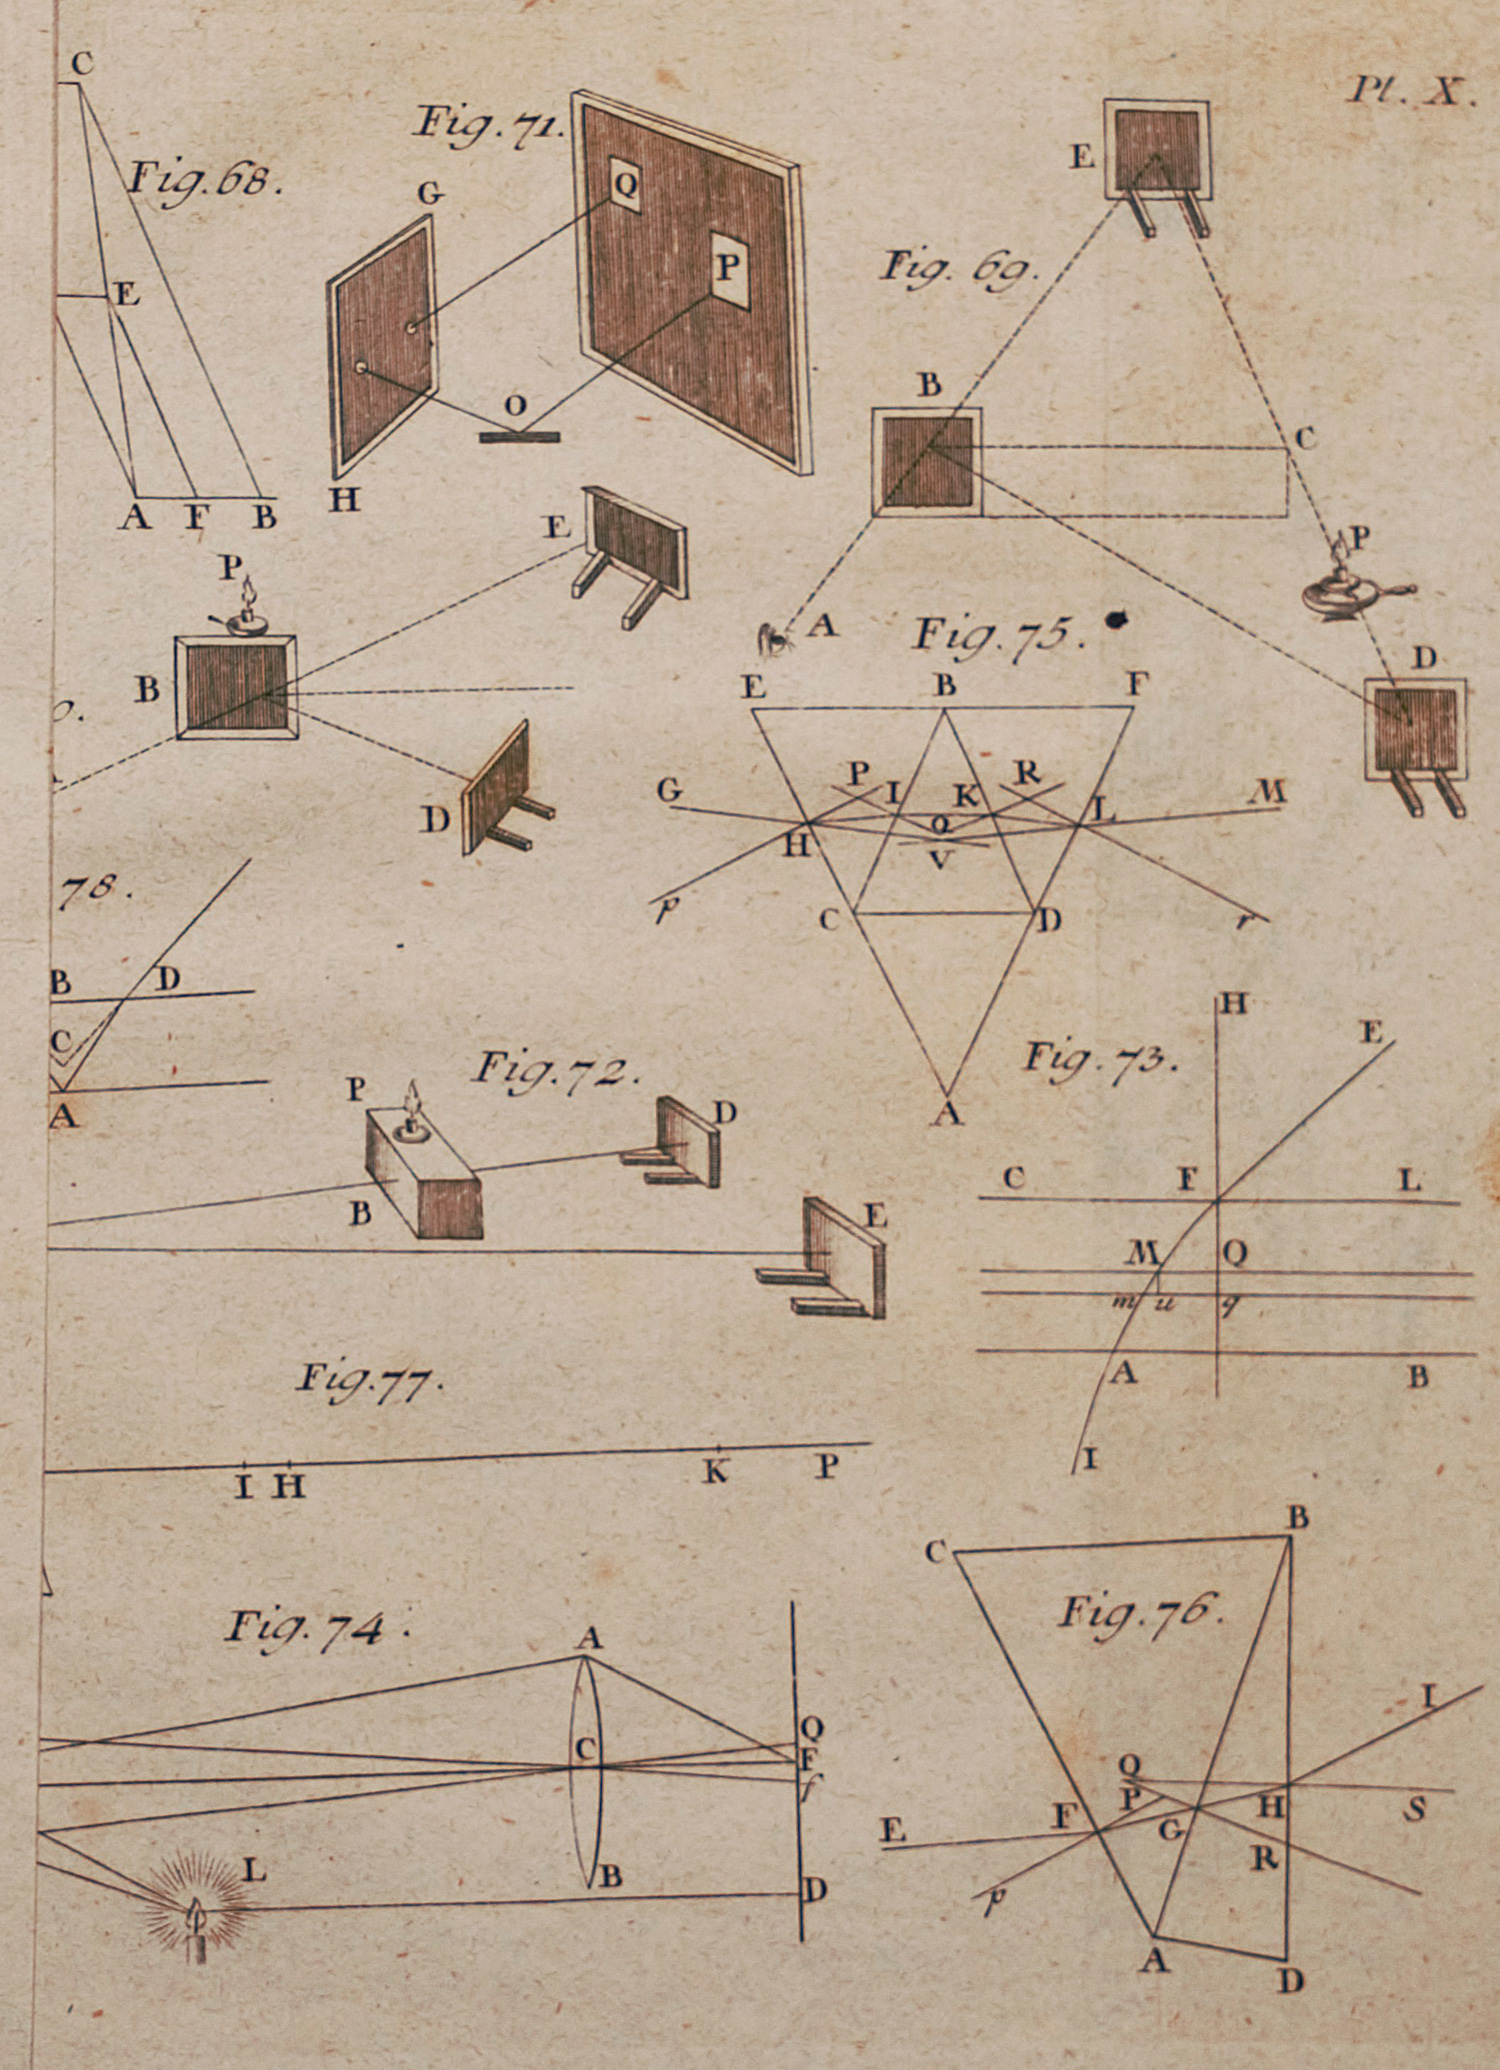 Pl. X.
C
Fig. 68.
E
A F B
Fig. 71.
G
Q
P
O
H
E
Fig. 69.
B
C
P
A
D
P
E
B
D
0.
Fig. 75.
E B F
G P I K R L M
H Q
V
p C D r
A
78.
B D
C
A
Fig. 72.
P D
B E
Fig. 73.
H
E
C F L
M Q
m u q
A B
I
Fig. 77.
I H K P
Fig. 74.
A
Q
C F
f
L B D
Fig. 76.
C B
I
Q
E F P H S
G
p R
A D